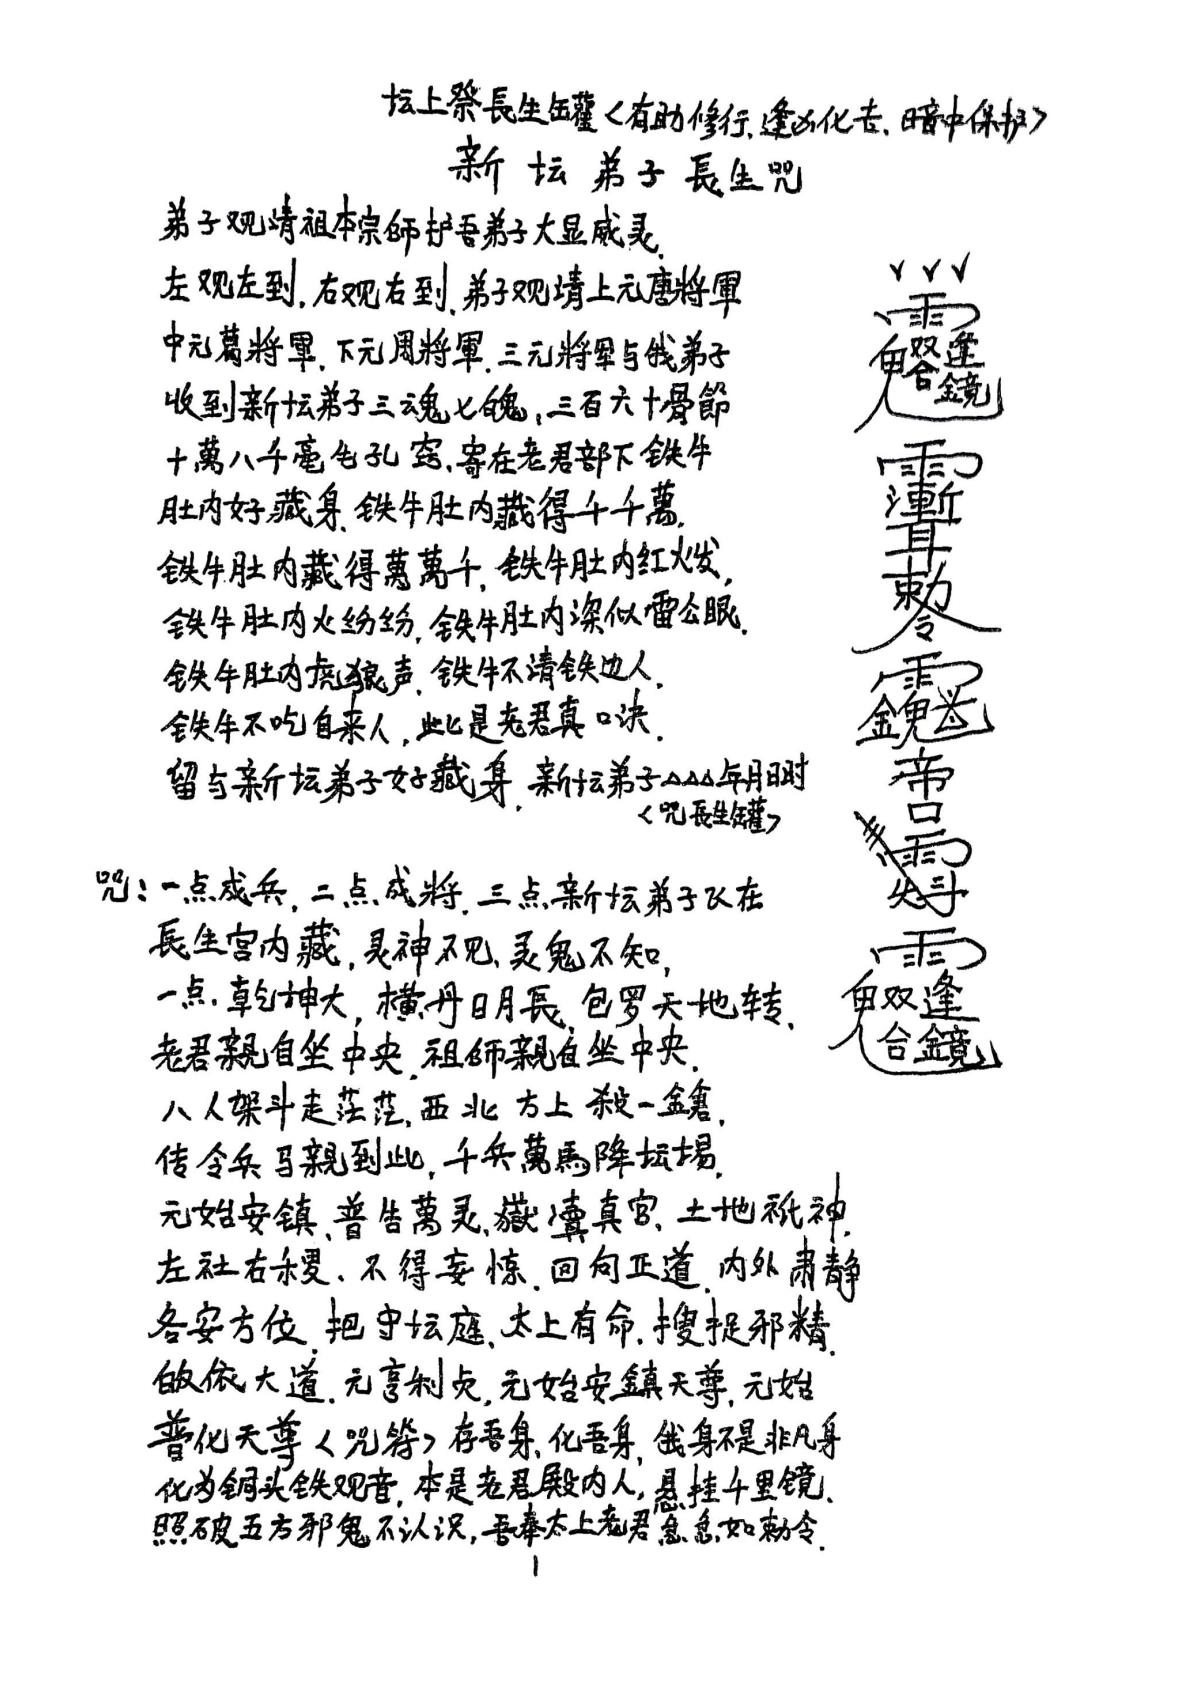 坛上祭長生缶藿<有助修行、逢凶化吉、暗中保护>
新坛弟子長生咒
弟子观靖祖本宗師护吾弟子大显威灵.
左观左到.右观右到.弟子观靖上元唐將軍
中元葛將軍.下元周將軍.三元將軍与俄弟子
收到新坛弟子三魂七魄,三百六十骨節
十萬八千毫毛孔窍.寄在老君部下铁牛
肚内好藏身.铁牛肚内藏得千千萬.
铁牛肚内藏得萬萬千.铁牛肚内红火发,
铁牛肚内火纷纷.铁牛肚内深似雷公眠.
铁牛肚内虎狼声.铁牛不请铁边人.
铁牛不吃自来人,此是老君真口决.
留与新坛弟子好藏身.新坛弟子△△△年月日时
<咒長生罐>
咒:一点成兵.二点成將.三点新坛弟子飞在
長生宫内藏,灵神不见、灵鬼不知,
一点.乾坤大,横丹日月長.包罗天地转.
老君親自坐中央.祖師親自坐中央.
八人架斗走茫茫.西北方上殺一鎗.
传令兵马親到此,千兵萬馬降坛場.
元始安镇、普告萬灵.嶽瀆真官、土地祇神.
左社右稷、不得妄惊.回向正道.内外肃静
各安方位.把守坛庭.太上有命.搜捉邪精.
皈依大道.元亨利贞.元始安鎮天尊.元始
普化天尊<咒符>存吾身.化吾身.俄身不是非凡身
化为铜头铁观音.本是老君殿内人,悬挂千里镜.
照破五方邪鬼不认识,吾奉太上老君急急如勅令.
1
雨
鬼双逢
合鏡
雨
漸
耳
勅
令
雨
金鬼
帝
口
雨
雨
鬼双逢
合鏡